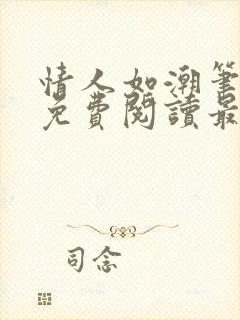 情人如潮筆
免費閱讀最
司念